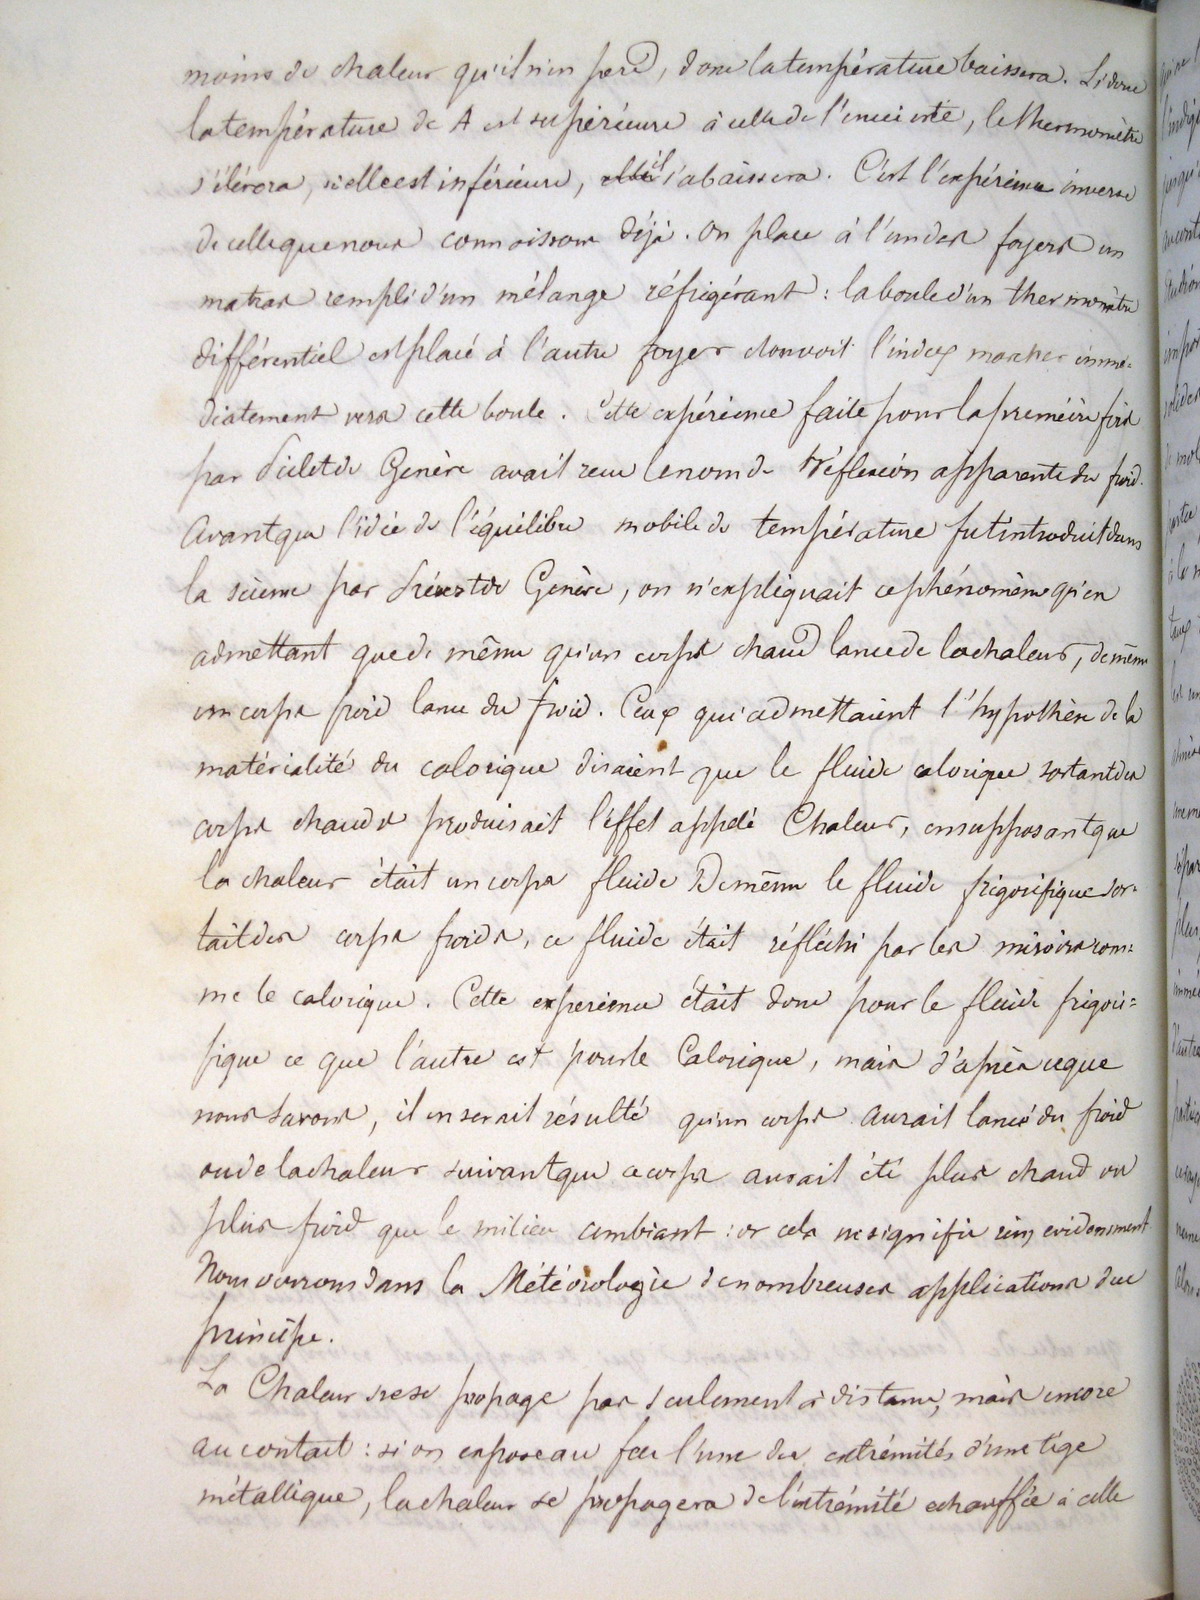 moins de chaleur qu'il n'en perd, donc la température baissera. Si donc
la température de A est supérieure à celle de l'enceinte, le thermomètre
s'élèvera, si elle est inférieure, il s'abaissera. C'est l'expérience inverse
de celle que nous connaissons déjà. On place à l'un des foyers un
matras rempli d'un mélange réfrigérant : la boule d'un thermomètre
différentiel est placé à l'autre foyer et on voit l'index marcher immé=
diatement vers cette boule. Cette expérience faite pour la première fois
par Pictet de Genève avait reçu le nom de réflexion apparente du froid.
Avant que l'idée de l'équilibre mobile de température fut introduit dans
la science par Prévost de Genève, on n'expliquait ce phénomène qu'en
admettant que de même qu'un corps chaud lance de la chaleur, de même
un corps froid lance du froid. Ceux qui admettaient l'hypothèse de la
matérialité du calorique disaient que le fluide calorique sortant des
corps chauds produisait l'effet appelé Chaleur, en supposant que
la chaleur était un corps fluide De même le fluide frigorifique sor=
tait des corps froids, ce fluide était réfléchi par les miroirs com=
me le calorique. Cette experience était donc pour le fluide frigori=
fique ce que l'autre est pour le Calorique, mais d'après ce que
nous savons, il en serait résulté qu'un corps aurait lancé du froid
ou de la chaleur suivant que ce corps aurait été plus chaud ou
plus froid que le milieu ambiant : or cela ne signifie rien evidemment
Nous verrons dans la Météorologie de nombreuses applications de ce
principe.
La Chaleur ne se propage pas seulement à distance, mais encore
au contact : si on expose au feu l'une des extrémités d'une tige
métallique, la chaleur se propagera de l'extrémité echauffée à celle